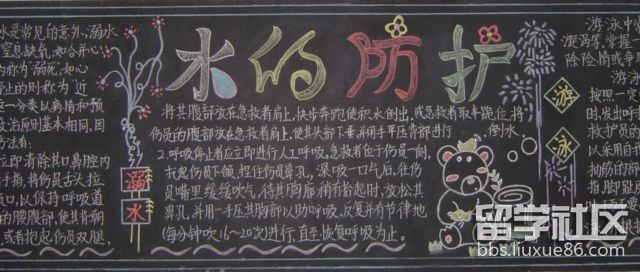 水是常见的意外、溺水
窒息缺氧,如合并心
为称为"溺死",如心
称为"近
一分类以病情和预
治原则基本相同,因
方法有:
立即清除其口鼻腔内
手指,将伤员舌头拉
口,以保持呼吸道
的腰腹部,使其背朝
或者抱起伤员双腿,
溺水
水的防护
将其腹部放在急救者肩上,快步奔跑使积水倒出,或急救者取半跪位,将
伤员的腹部放在急救者肩上,使其头部下垂并用手平压背部进行
倒水
2.呼吸停止者应立即进行人工呼吸,急救者位于伤员一侧,
托起伤员下颌,捏住伤员鼻孔,深吸一口气后,往伤
员嘴里缓缓吹气,待其胸廓稍有抬起时,放松其
鼻孔,并用一手压其胸部以助呼吸,反复并有节律地
(每分钟吹16~20次)进行,直至恢复呼吸为止。
游泳
游泳中
漩涡等,掌握
除险情或争取
按照一定
时,发出呼
救护员
以采用自
抽筋的
指,脚
留学社区
bbs.liuxue86.com